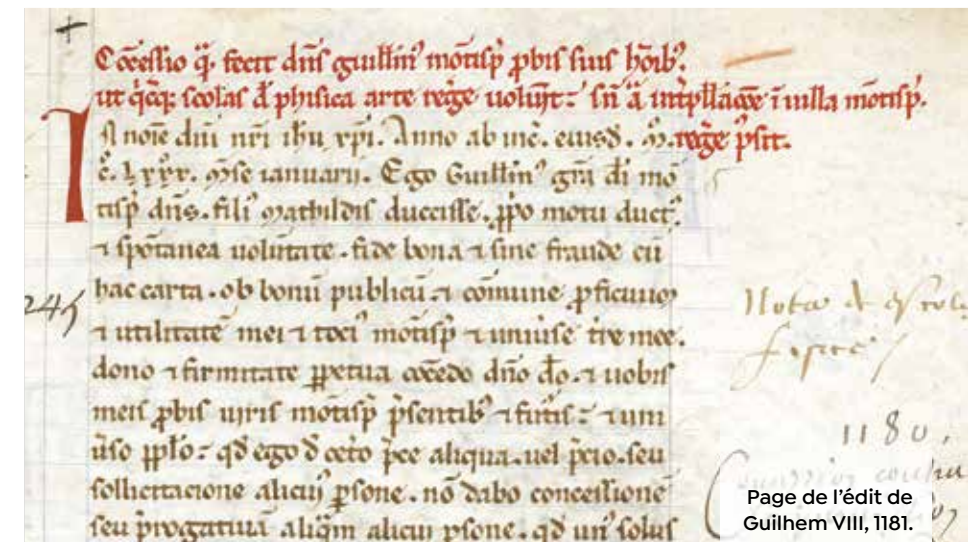 Cōcessio q̄. fecit dn̄s guillm̄ꝰ mōtisp̄ ꝓbis suis hōibꝫ.
ut q̇cq̨ scolas d̄ phisica arte reḡe uolūt: sn̄ ā int̄pllac̄oe ī uilla mōtisp̄.
reḡe p̄sit.
In noīe dn̄i nr̄i ih̄u xp̄i. Anno ab inc̄. eiusd̄. M̄.
C̄. lxxx. m̄se ianuarii. Ego Guillm̄ꝰ grā dī mō
tisp̄ dn̄s. filiꝰ Mathildis ducisse. ꝓpō motu ductꝰ.
⁊ spōtanea uolūtate. fide bona ⁊ sine fraude cū
hac carta. ob bonū publicū. ⁊ cōmune ꝓficuum
245
⁊ utilitatē mei ⁊ tociꝰ mōtisp̄ ⁊ uniu̇se tr̄e mee.
dono ⁊ firmitate ꝑpetua cōcedo dn̄o dō. ⁊ uobis
meis ꝓbis uiris mōtisp̄ p̄sentibꝫ ⁊ futīs: ⁊ uni
u̇so ppl̄o: qd̄ ego d̄ cet̄o p̄ce aliqua. uel p̄cio. seu
sollicitacione alicuiꝰ ꝑsone. nō dabo concessionē
seu p̄rogatiuā aliq̄m alicui ꝑsone. qd̄ unꝰ solus
Nota
1180.
Page de l’édit de
Guilhem VIII, 1181.